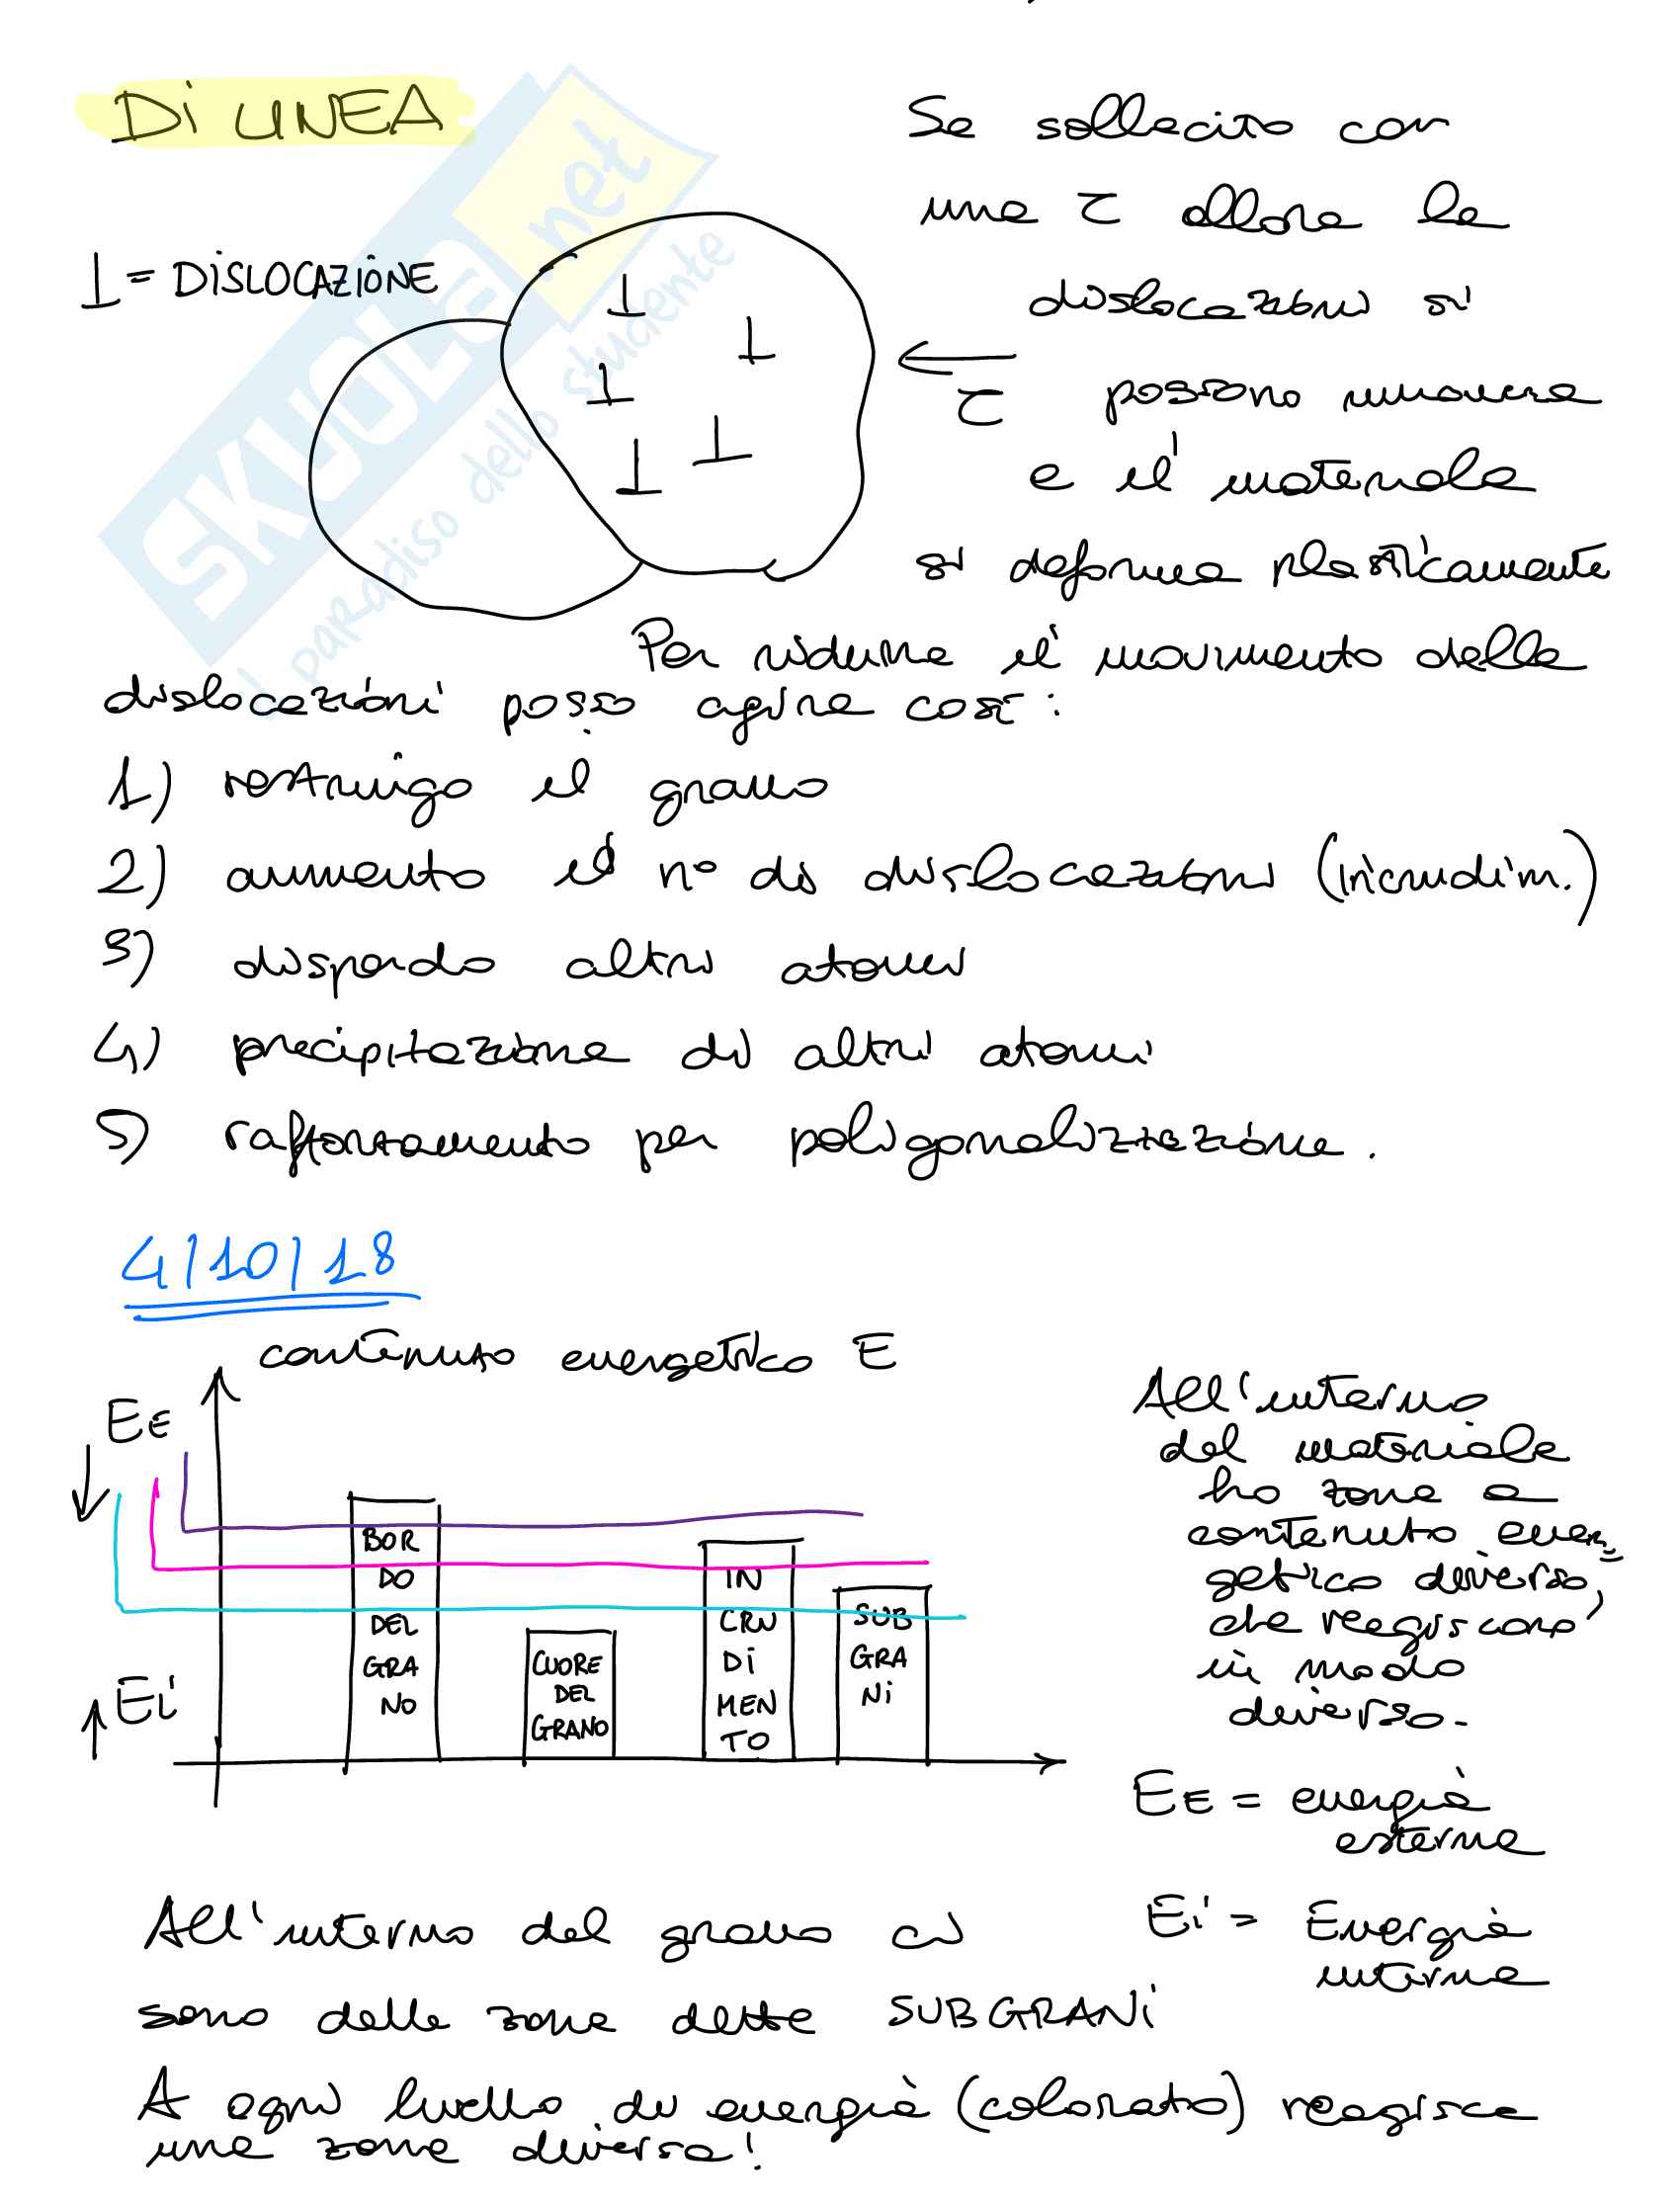 Di LINEA
⊥ = DiSLOCAZIONE
SKUOLA.net
il paradiso dello studente
Se sollecito con
una τ allora le
dislocazioni si
possono muovere
τ
e il materiale
si deforma plasticamente
Per ridurre il movimento delle
dislocazioni posso agire così:
1) restringo il grano
2) aumento il n° di dislocazioni (incrudim.)
3) disperdo altri atomi
4) precipitazione di altri atomi
5) rafforzamento per poligonalizzazione.
4/10/18
contenuto energetico E
EE
Ei
BOR
DO
DEL
GRA
NO
CUORE
DEL
GRANO
IN
CRU
Di
MEN
TO
SUB
GRA
Ni
All'interno
del materiale
ho zone a
contenuto ener=
getico diverso,
che reagiscono
in modo
diverso.
EE = energia
esterna
Ei = Energia
interna
All'interno del grano ci
sono delle zone dette SUBGRANi
A ogni livello di energia (colorato) reagisce
una zona diversa!